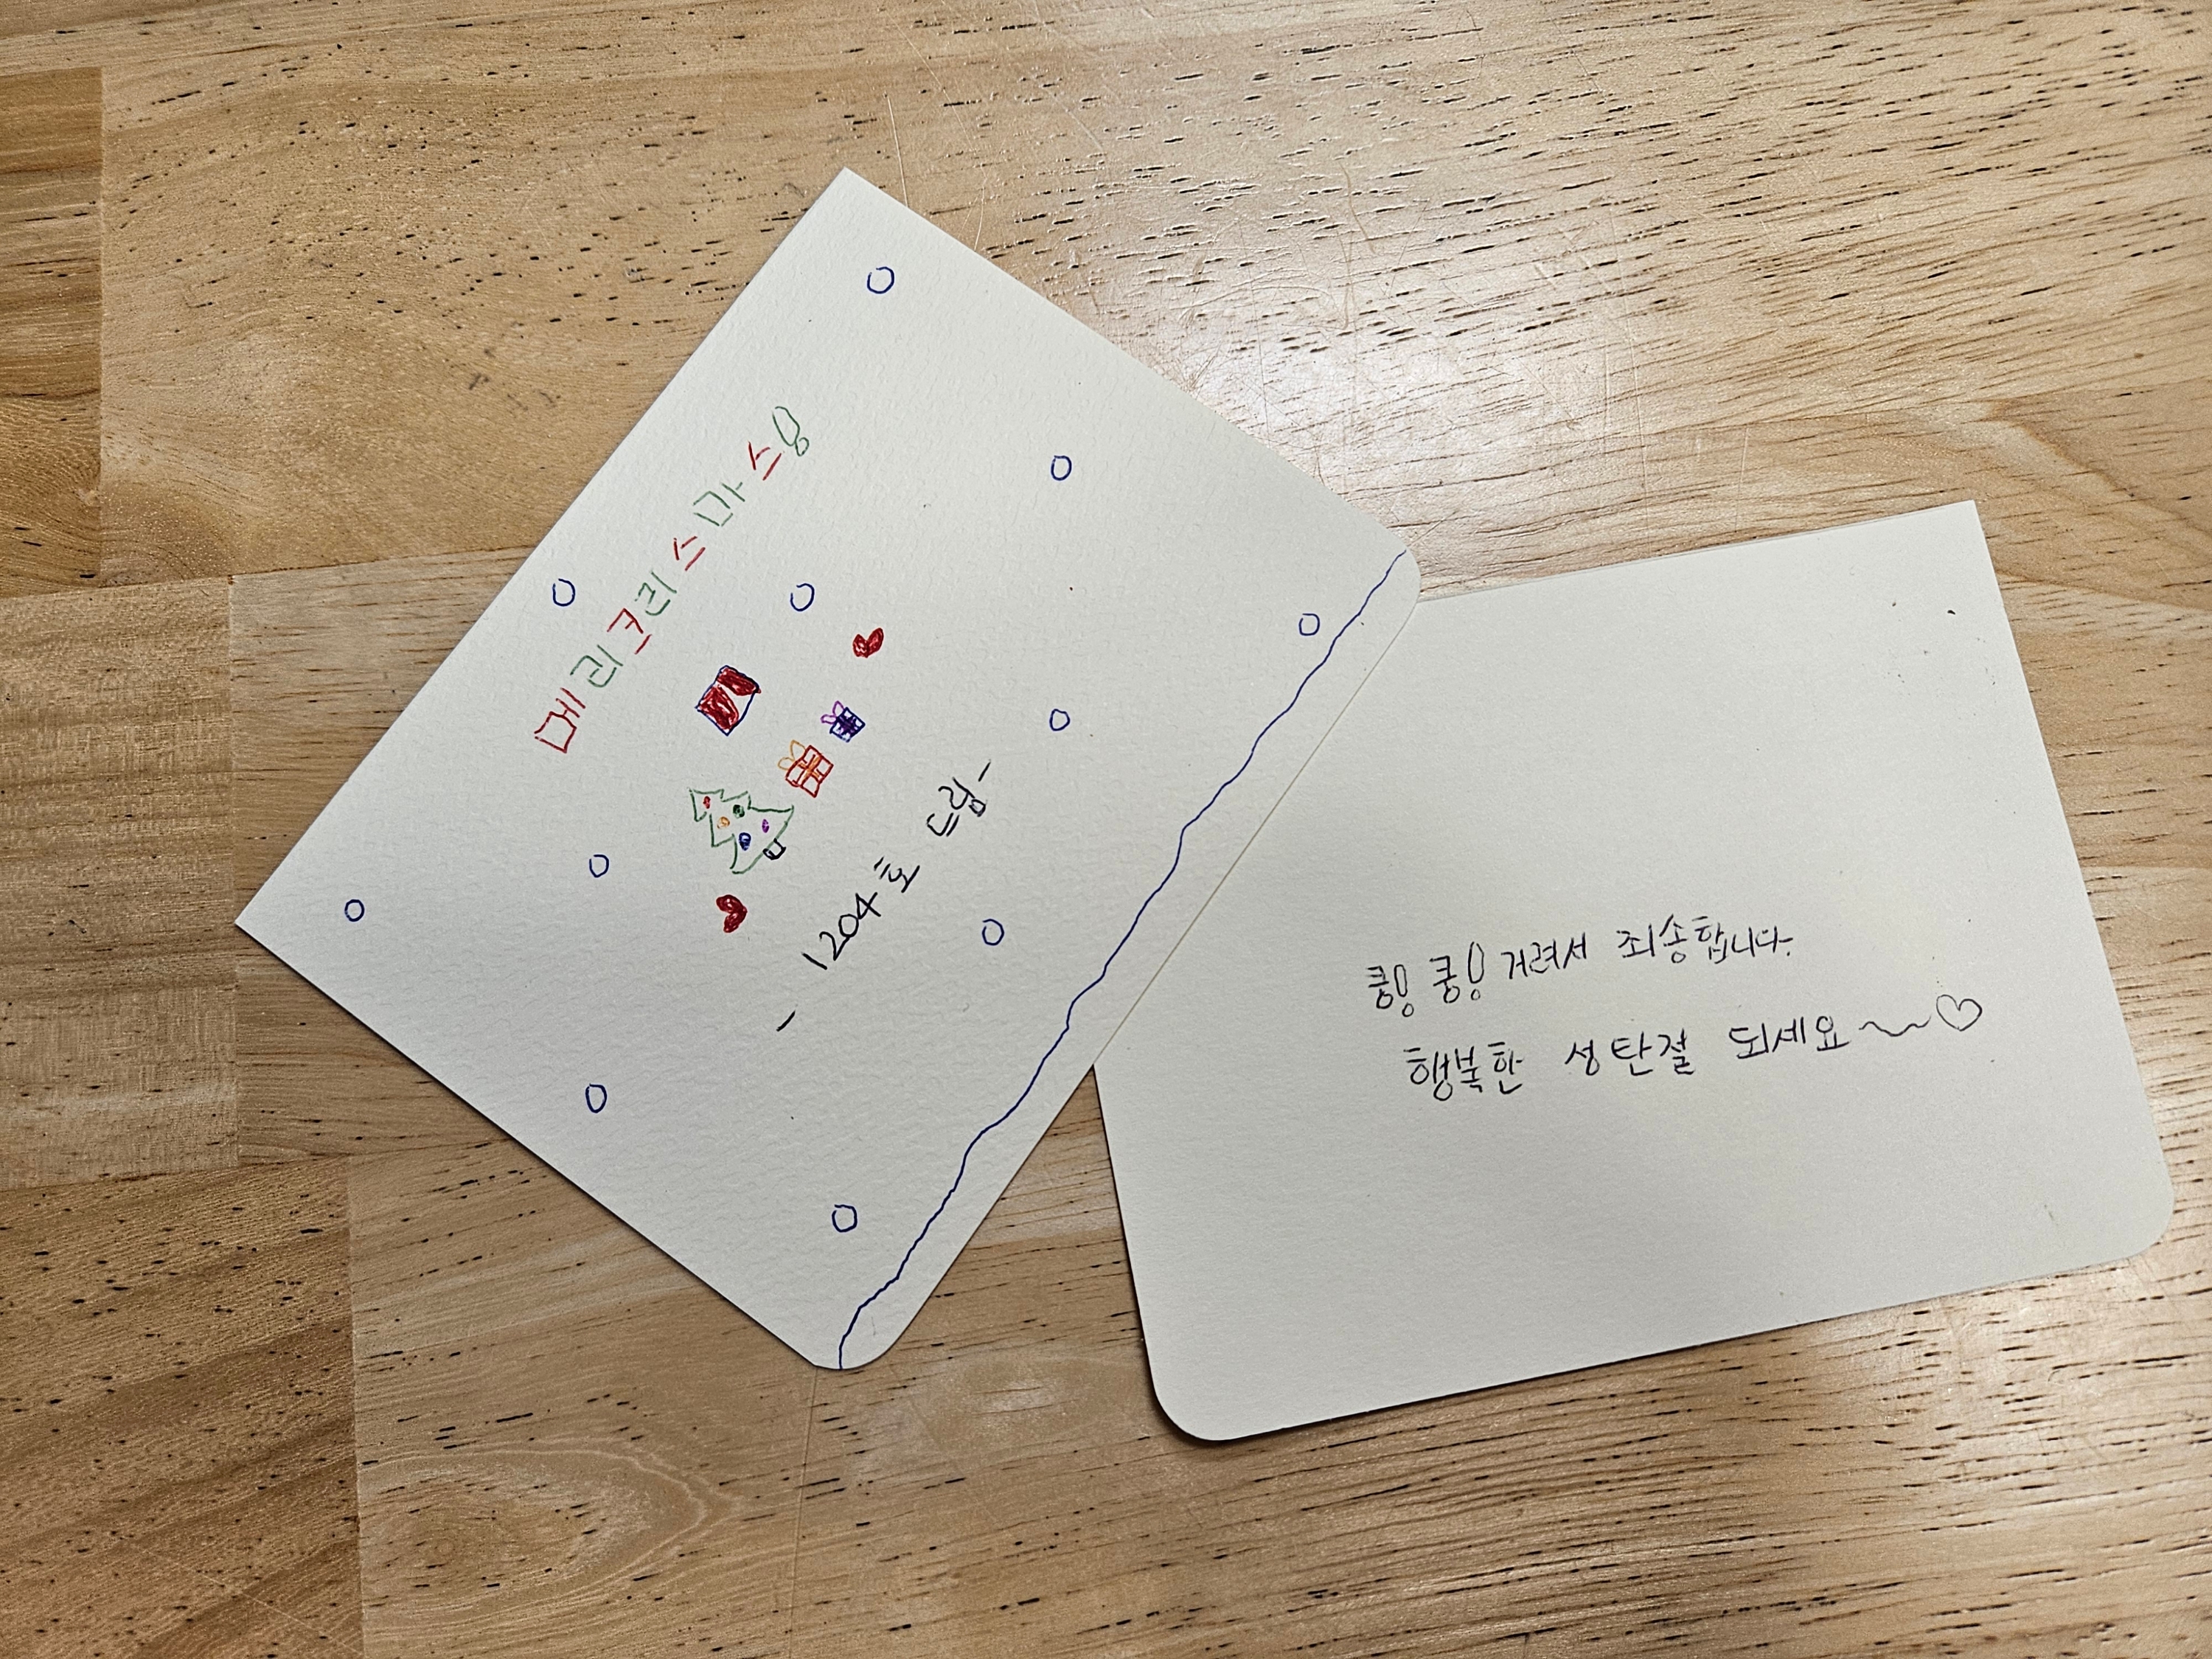 메리크리스마스!
- 1204호 드림 -
쿵! 쿵! 거려서 죄송합니다.
행복한 성탄절 되세요~♡